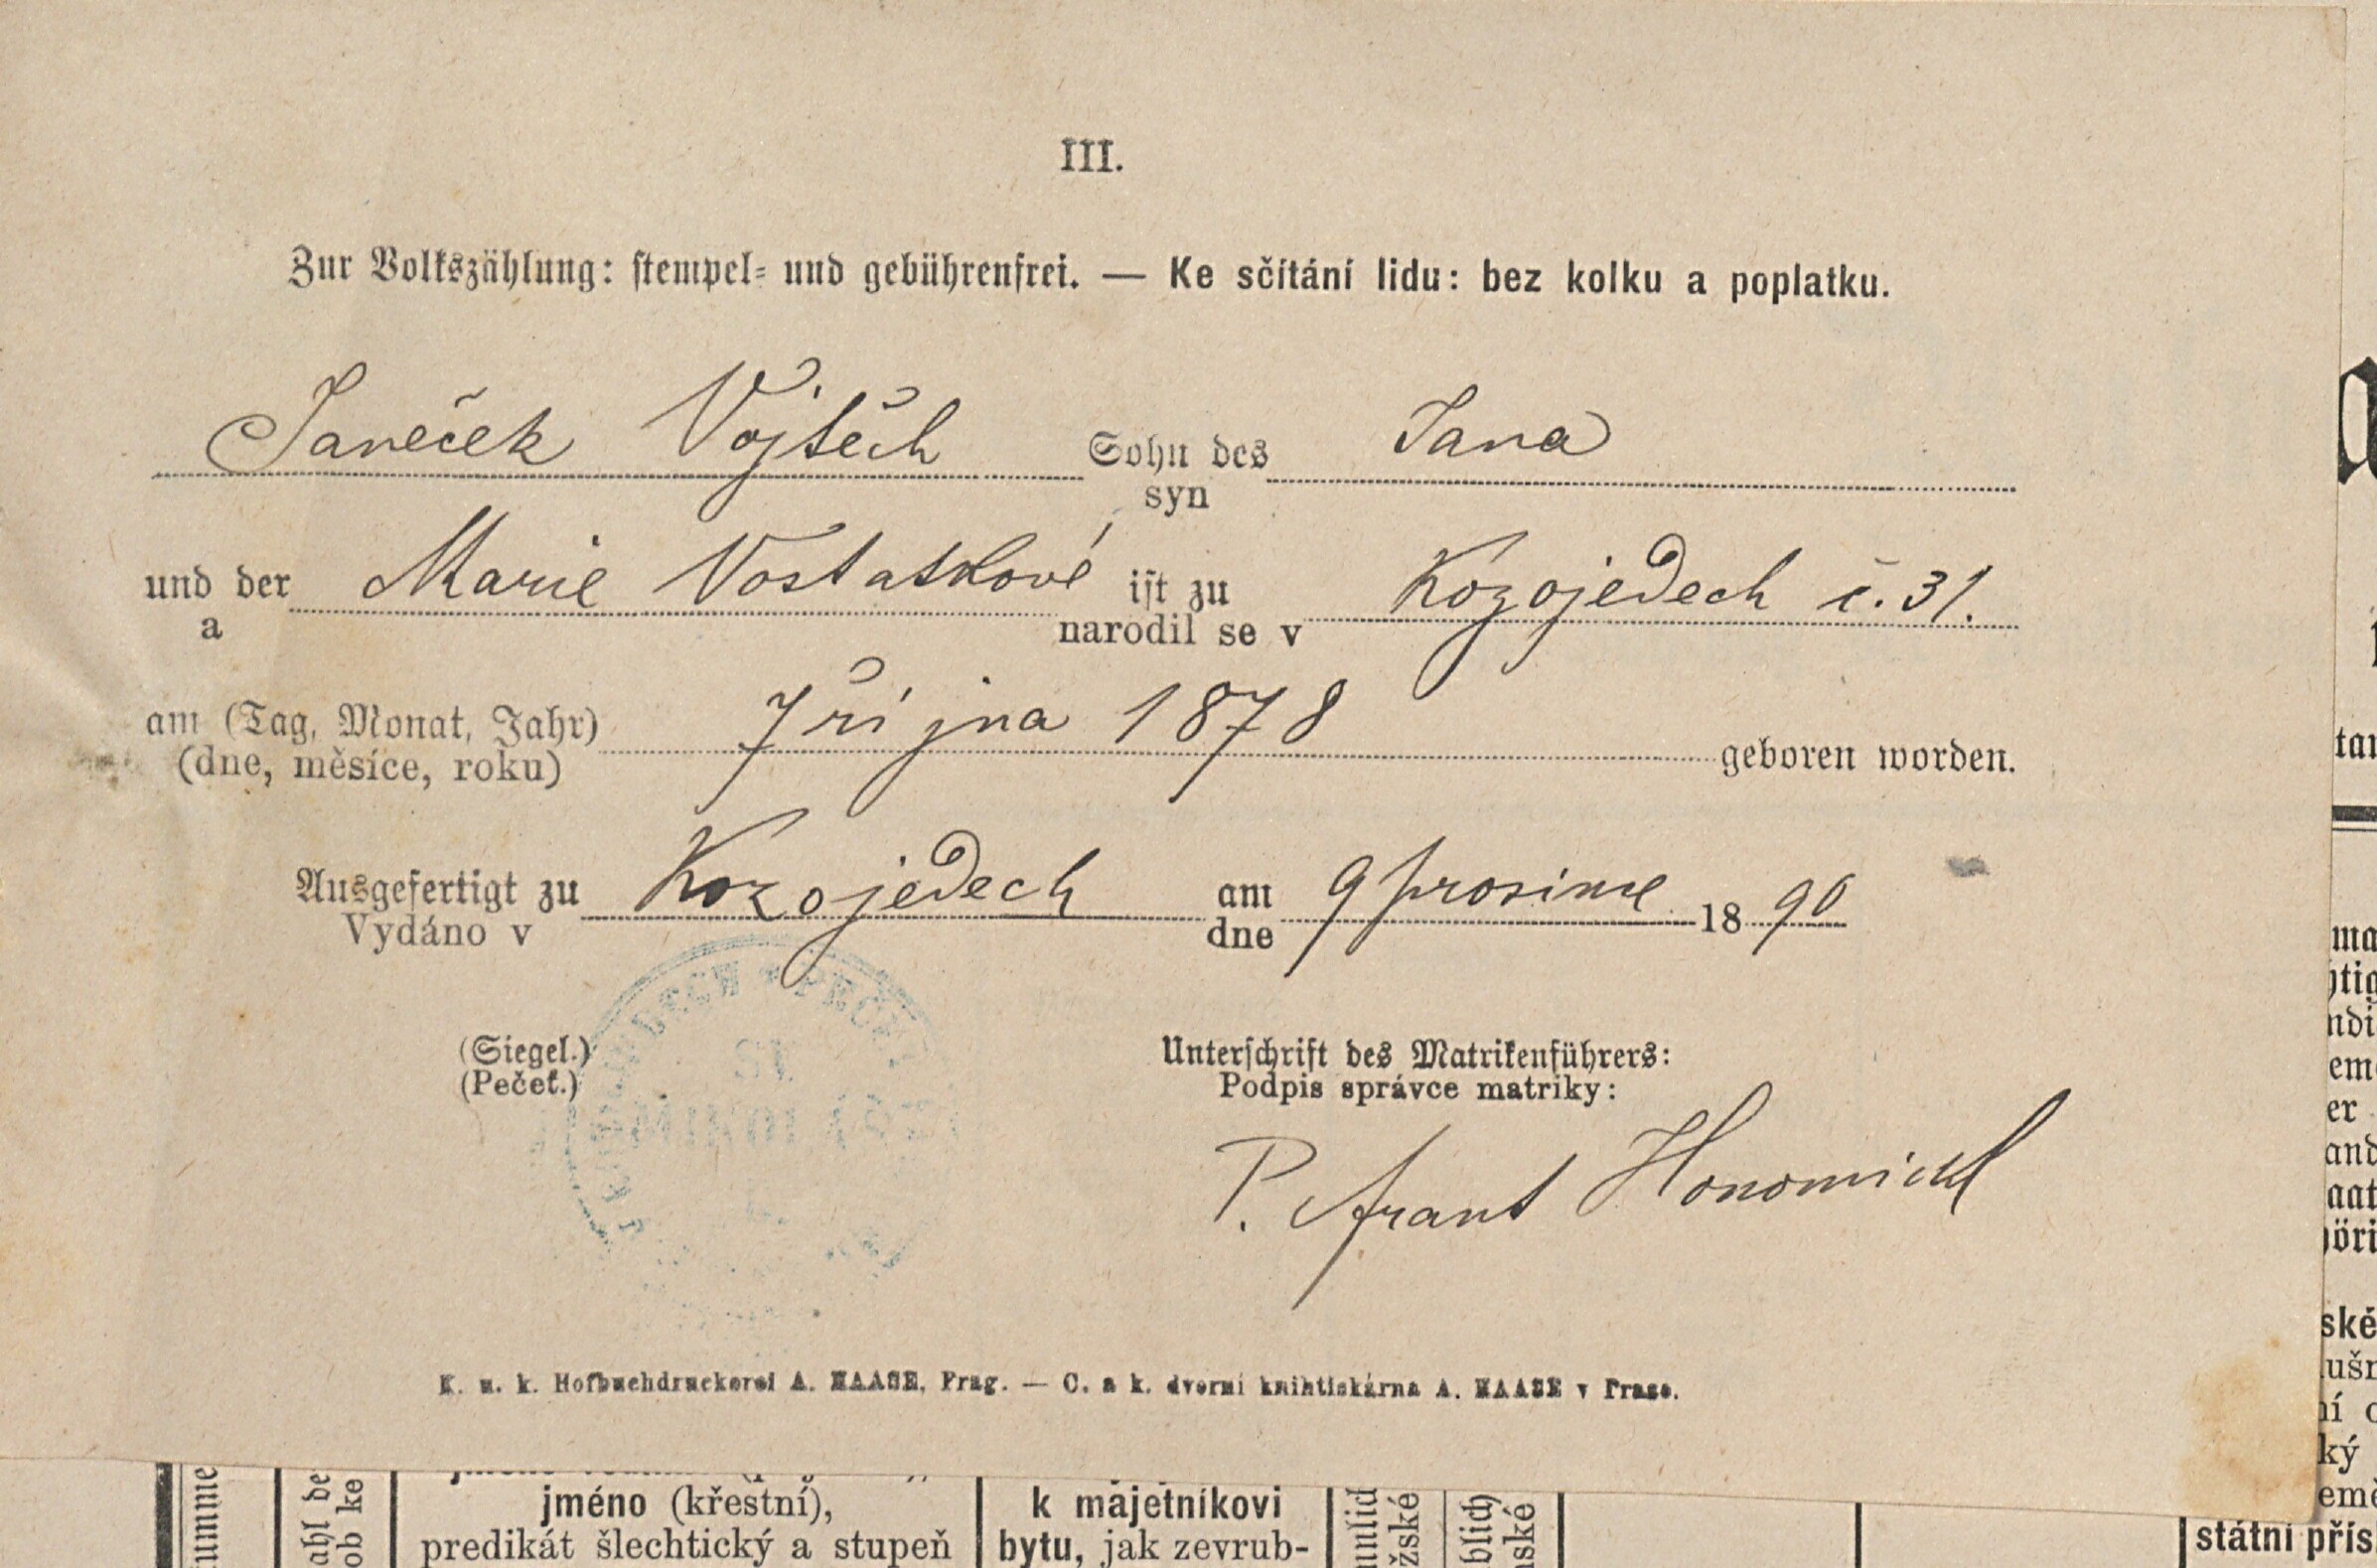 III.
Zur Volkszählung: stempel- und gebührenfrei. — Ke sčítání lidu: bez kolku a poplatku.
Janeček Vojtěch Sohn des Jana
syn
und der Marie Vostatkové ist zu Kozojedech č. 31.
a narodil se v
am (Tag, Monat, Jahr) 7 října 1878 geboren worden.
(dne, měsíce, roku)
Ausgefertigt zu Kozojedech am 9 prosince 1890
Vydáno v dne
(Siegel.) Unterschrift des Matrikenführers:
(Pečeť.) Podpis správce matriky:
P. Frant Honomichl
K. u. k. Hofbuchdruckerei A. HAASE, Prag. — C. a k. dvorní knihtiskárna A. HAASE v Praze.
jméno (křestní), k majetníkovi
predikát šlechtický a stupeň bytu, jak zevrub-
státní přís